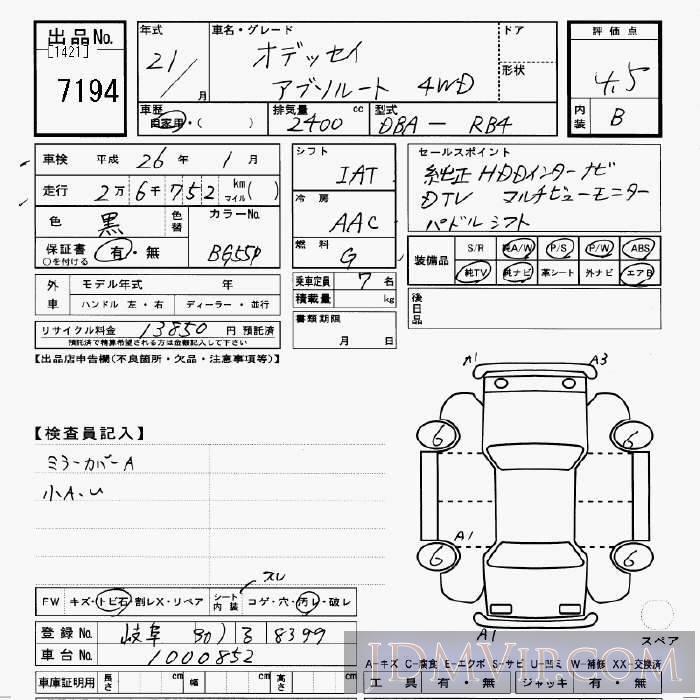 出品No.
[1421]
7194
年式
21/
月
車名・グレード
オデッセイ
アブソルート 4WD
ドア
形状
評価点
4.5
内装
B
車歴
自家用・( )
排気量
2400 cc
型式
DBA － RB4
車検 平成 26 年 1 月
走行 2万6千752 km マイル( )
色
黒
色替
カラーNo.
BG55P
保証書
○を付ける
有・無
外車
モデル年式 年
ハンドル 左・右
ディーラー・並行
リサイクル料金 13850 円 預託済
預託済で精算希望される方は金額記入して下さい
シフト
IAT
冷房
AAC
燃料
G
乗車定員 7 名
積載量 kg
書類期限
月 日
セールスポイント
純正HDDインターナビ
DTV マルチビューモニター
パドルシフト
装備品
S/R 純A/W P/S P/W ABS
純TV 純ナビ 革シート 外ナビ エアB
後日品
【出品店申告欄(不良箇所・欠品・注意事項等)】
【検査員記入】
ミラーカバーA
小A.U
A1
A3
6
6
A1
6
6
A1
スペア
スレ
FW キズ・トビ石・割レX・リペア
シート内装
コゲ・穴・汚レ・破レ
登録No. 岐阜 301 る 8399
車台No. 1000852
車庫証明用 長さ cm 幅 cm 高さ cm
A－キズ C－腐食 E－エクボ S－サビ U－凹ミ W－補修 XX－交換済
工具 有・無 ジャッキ 有・無
JDMVIP.COM